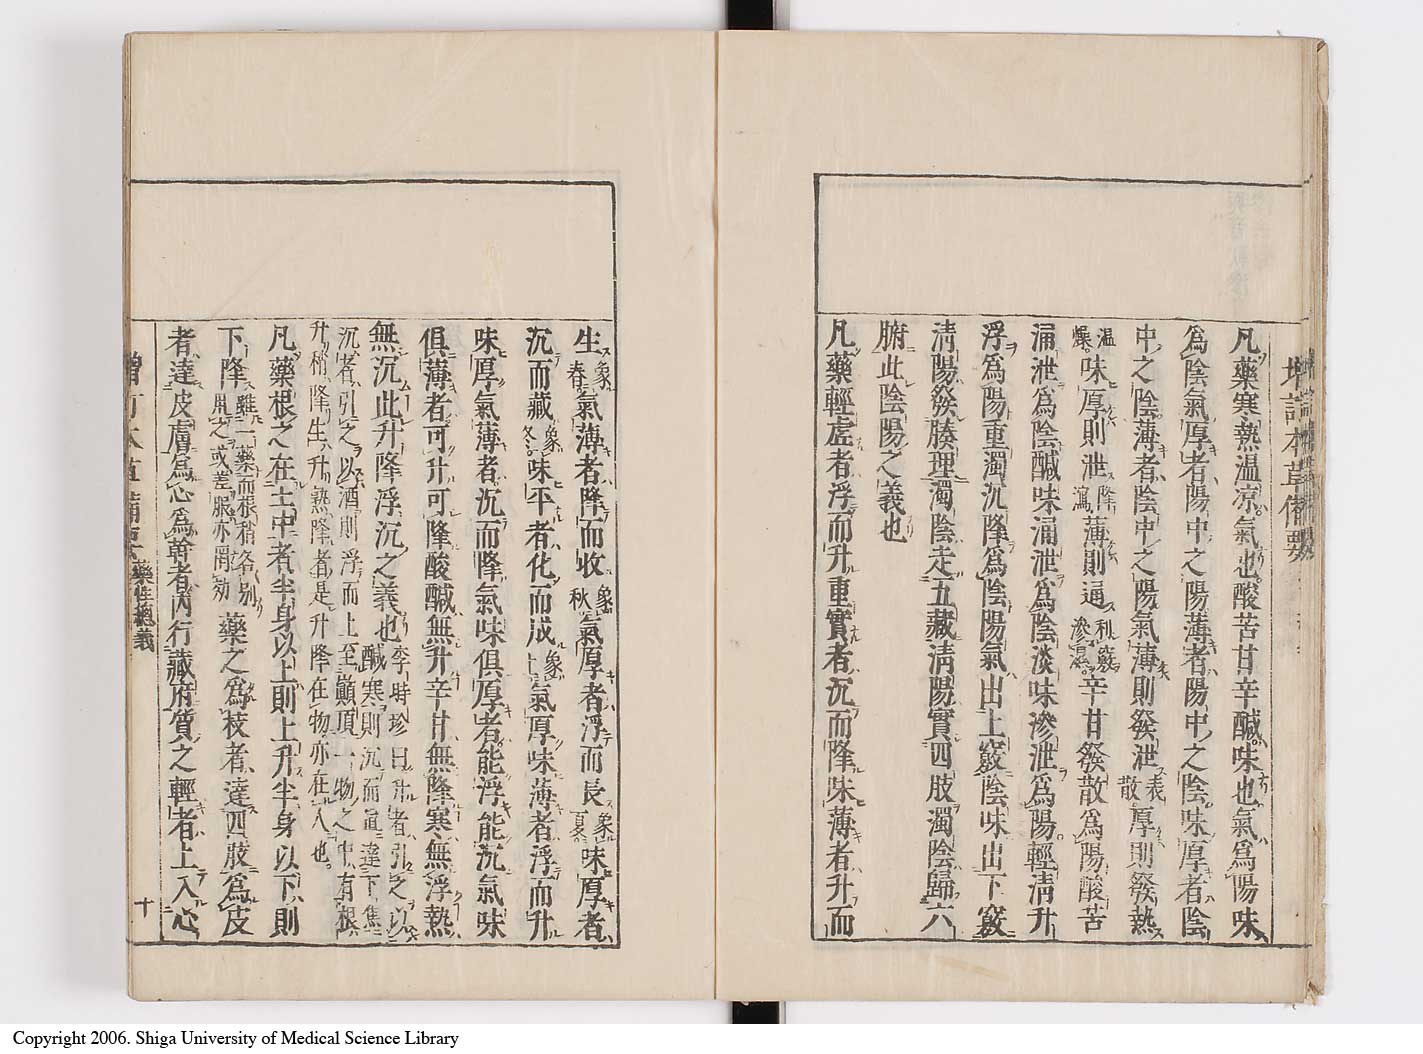 凡藥寒熱溫凉氣也酸苦甘辛鹹味也氣爲陽味
爲陰氣厚者陽中之陽薄者陽中之陰味厚者陰
中之陰薄者陰中之陽氣薄則發泄表散厚則發熱
温燥味厚則泄降瀉薄則通利竅滲濕辛甘發散爲陽酸苦
涌泄爲陰鹹味涌泄爲陰淡味滲泄爲陽輕淸升
浮爲陽重濁沉降爲陰陽氣出上竅陰味出下竅
淸陽發腠理濁陰走五藏淸陽實四肢濁陰歸六
腑此陰陽之義也
凡藥輕虛者浮而升重實者沉而降味薄者升而
生象春氣薄者降而收象秋氣厚者浮而長象夏味厚者
沉而藏象冬味平者化而成象土氣厚味薄者浮而升
味厚氣薄者沉而降氣味俱厚者能浮能沉氣味
俱薄者可升可降酸鹹無升辛甘無降寒無浮熱
無沉此升降浮沉之義也李時珍曰升者引之以鹹寒則沉而直達下焦
沉者引之以酒則浮而上至顚頂一物之中有根
升稍降生升熟降者是升降在物亦在人也
凡藥根之在土中者半身以上則上升半身以下則
下降雖一藥而根稍各別用之或差服亦罔効藥之爲枝者達四肢爲皮
者達皮膚爲心爲幹者內行藏府質之輕者上入心
藥性總義
十
Copyright 2006. Shiga University of Medical Science Library